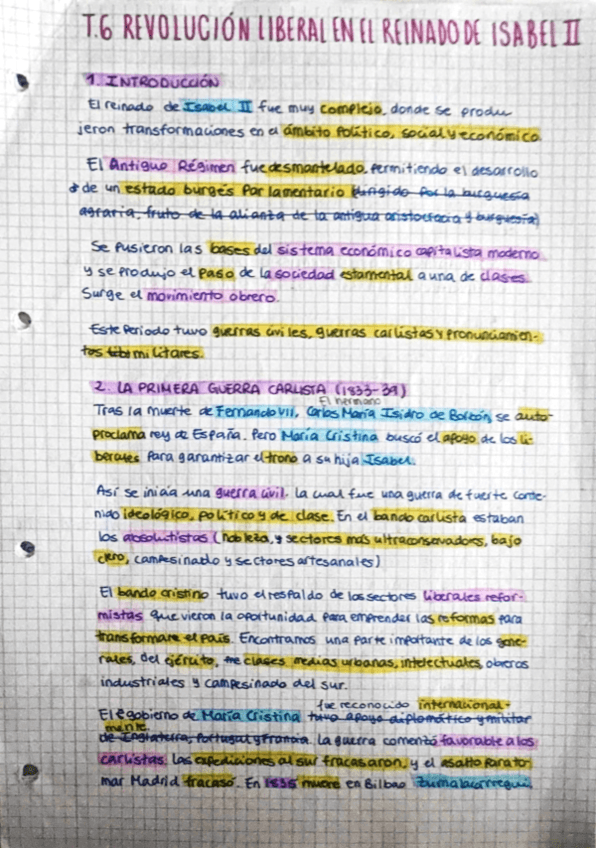 T.6 REVOLUCIÓN LIBERAL EN EL REINADO DE ISABEL II
1. INTRODUCCIÓN
El reinado de Isabel II fue muy complejo, donde se produ
jeron transformaciones en el ámbito político, social y económico.
El Antiguo Régimen fue desmantelado, permitiendo el desarrollo
de un estado burgés parlamentario (dirigido por la burguesía
agraria, fruto de la alianza de la antigua aristocracia y burguesía)
Se pusieron las bases del sistema económico capitalista moderno
y se produjo el paso de la sociedad estamental a una de clases.
Surge el movimiento obrero.
Este periodo tuvo guerras civiles, guerras carlistas y pronunciamien-
tos militares.
2. LA PRIMERA GUERRA CARLISTA (1833-39)
El hermano
Tras la muerte de Fernando VII, Carlos María Isidro de Borbón, se auto-
proclama rey de España. Pero María Cristina buscó el apoyo de los li-
berales para garantizar el trono a su hija Isabel.
Así se inicia una guerra civil. la cual fue una guerra de fuerte conte-
nido ideológico, político y de clase. En el bando carlista estaban
los absolutistas (nobleza, y sectores más ultraconservadores, bajo
clero, campesinado y sectores artesanales)
El bando cristino tuvo el respaldo de los sectores liberales refor-
mistas que vieron la oportunidad para emprender las reformas para
transformar el país. Encontramos una parte importante de los gene-
rales, del ejército, clases medias urbanas, intelectuales, obreros
industriales y campesinado del sur.
fue reconocido internacional-
El gobierno de María Cristina tuvo apoyo diplomático y militar
mente.
de Inglaterra, Portugal y Francia. La guerra comenzó favorable a los
carlistas. Las expediciones al sur fracasaron, y el asalto para to
mar Madrid fracasó. En 1835 muere en Bilbao Zumalacarregui